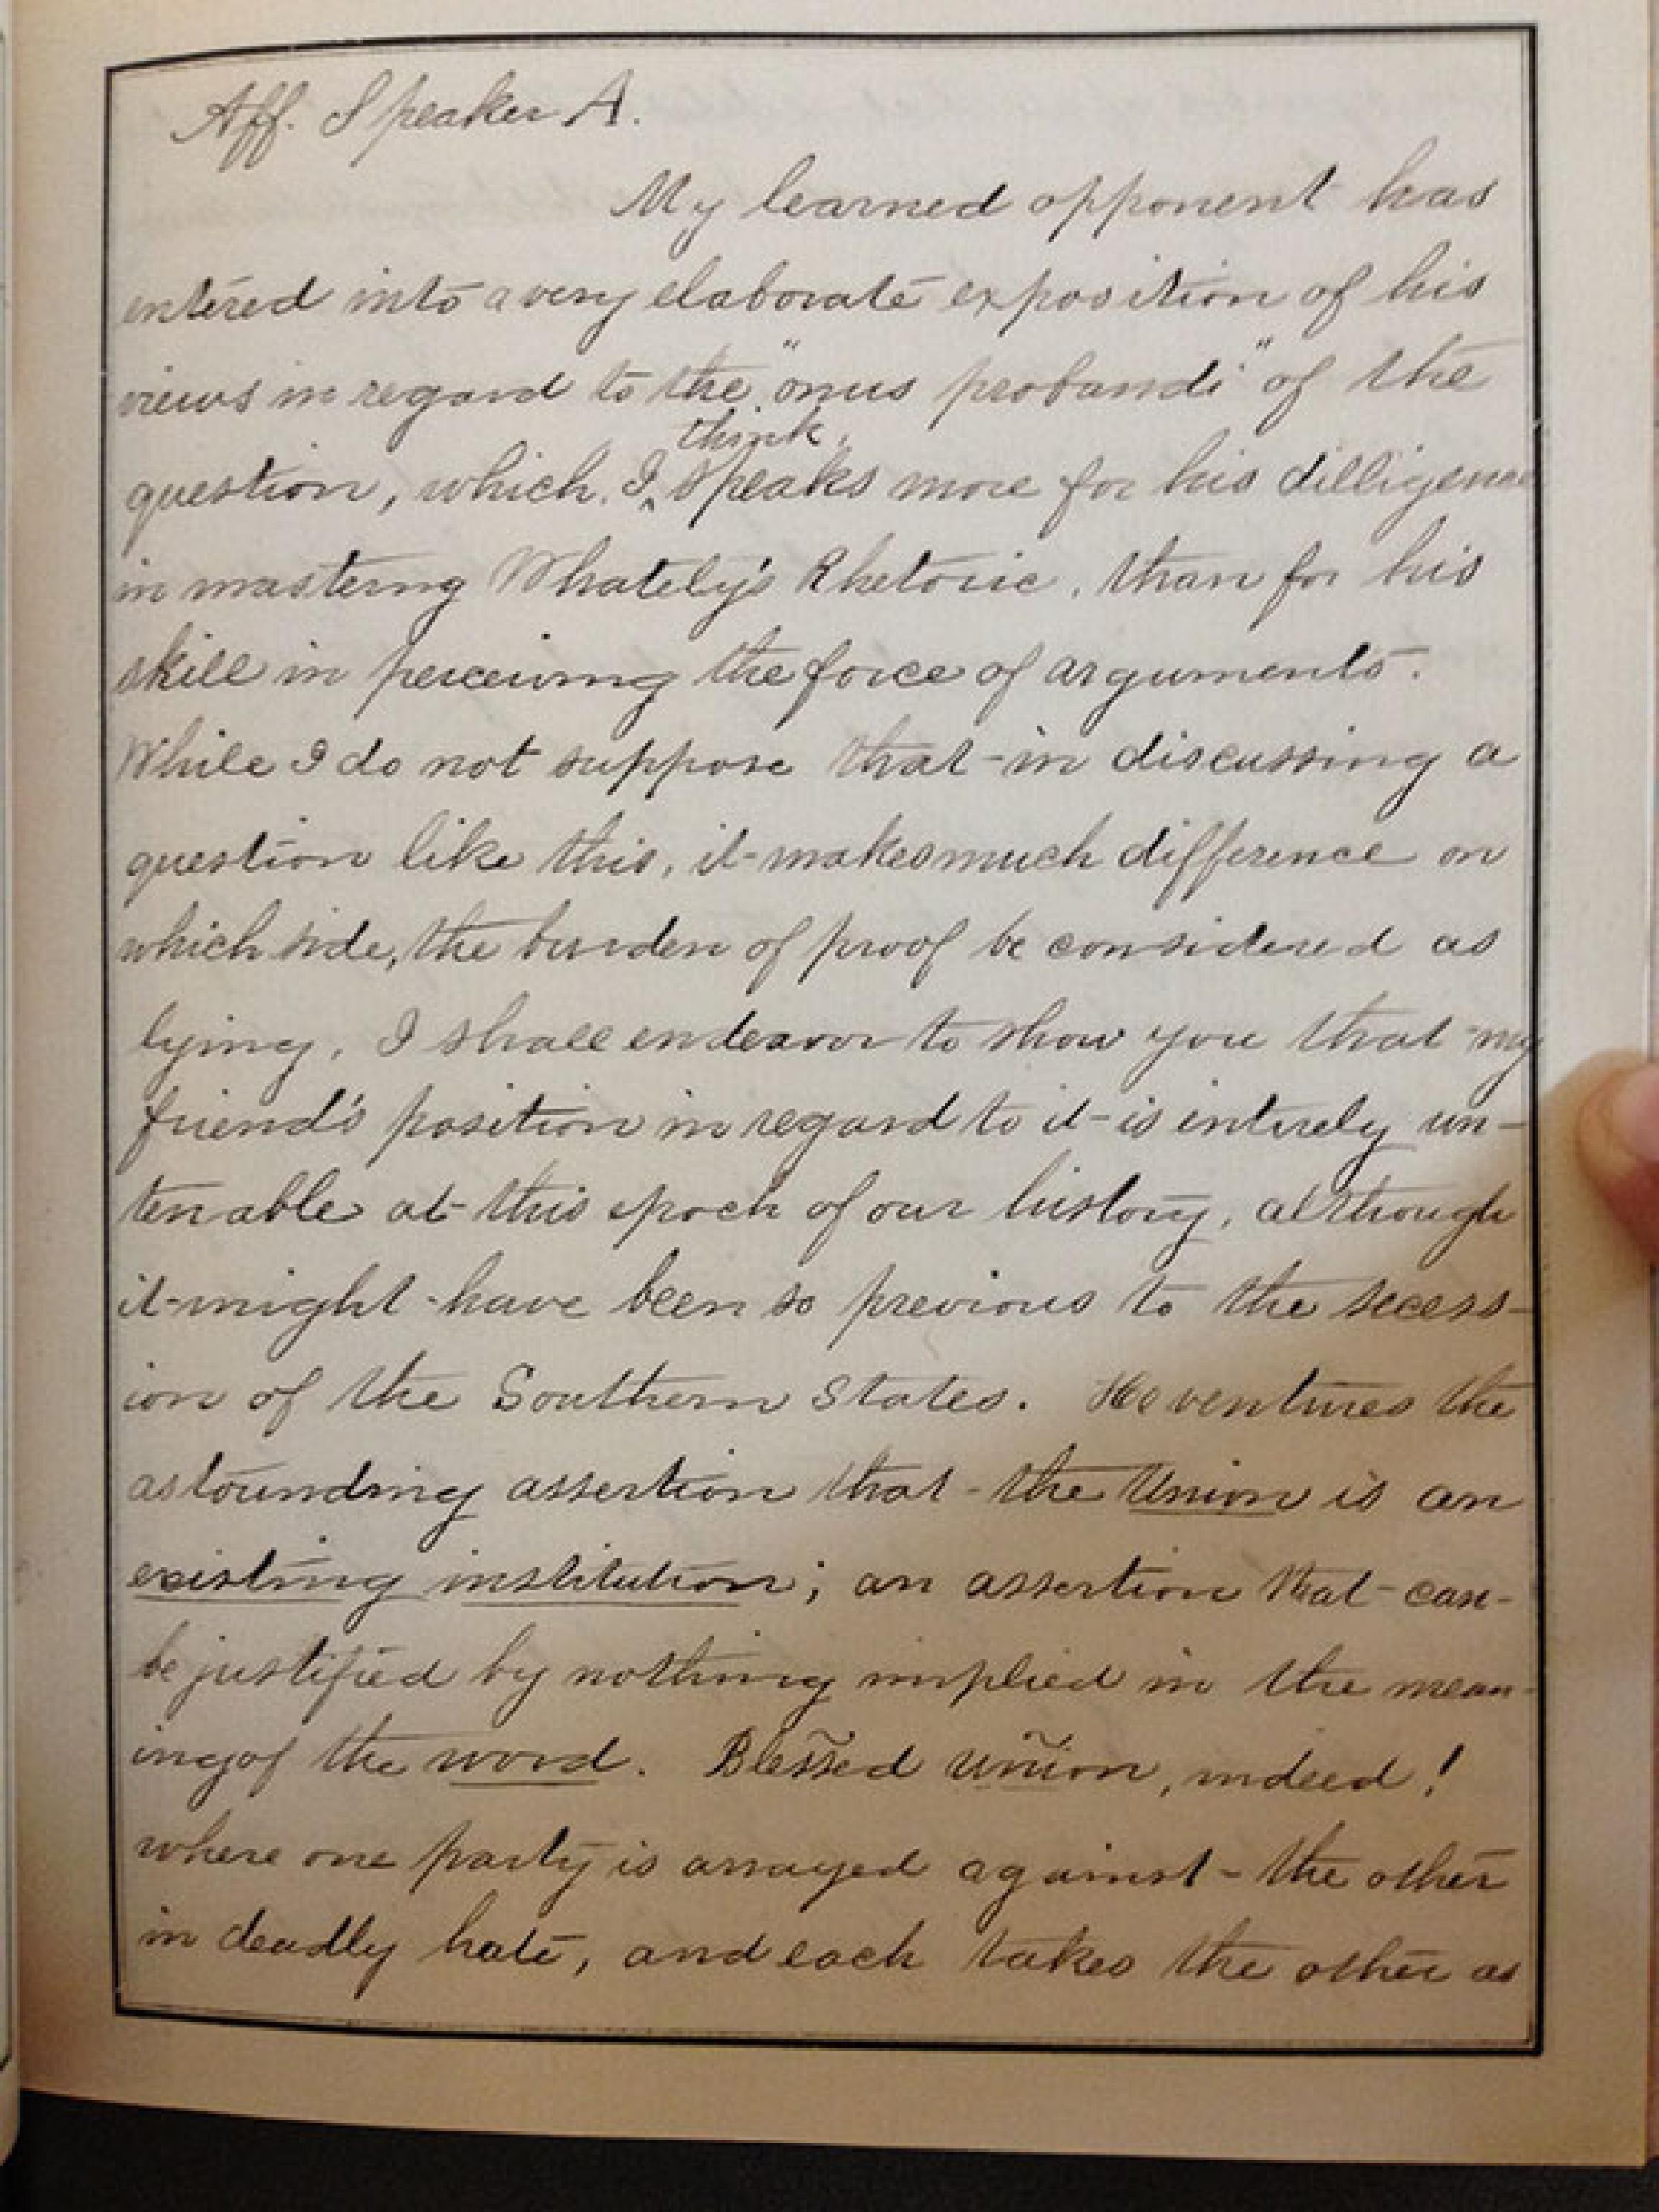 Aff. Speaker A.
My learned opponent has
entered into a very elaborate exposition of his
views in regard to the "onus probandi" of the
think
question, which, I speaks more for his dilligence
in mastering Whately's Rhetoric, than for his
skill in perceiving the force of arguments.
While I do not suppose that in discussing a
question like this, it makes much difference on
which side, the burden of proof be considered as
lying, I shall endeavor to show you that my
friend's position in regard to it is entirely un-
tenable at this epoch of our history, although
it might have been so previous to the secess-
ion of the Southern States. He ventures the
astounding assertion that the Union is an
existing institution; an assertion that can
be justified by nothing implied in the mean-
ing of the word. Blessed union, indeed!
where one party is arrayed against the other
in deadly hate, and each takes the other as